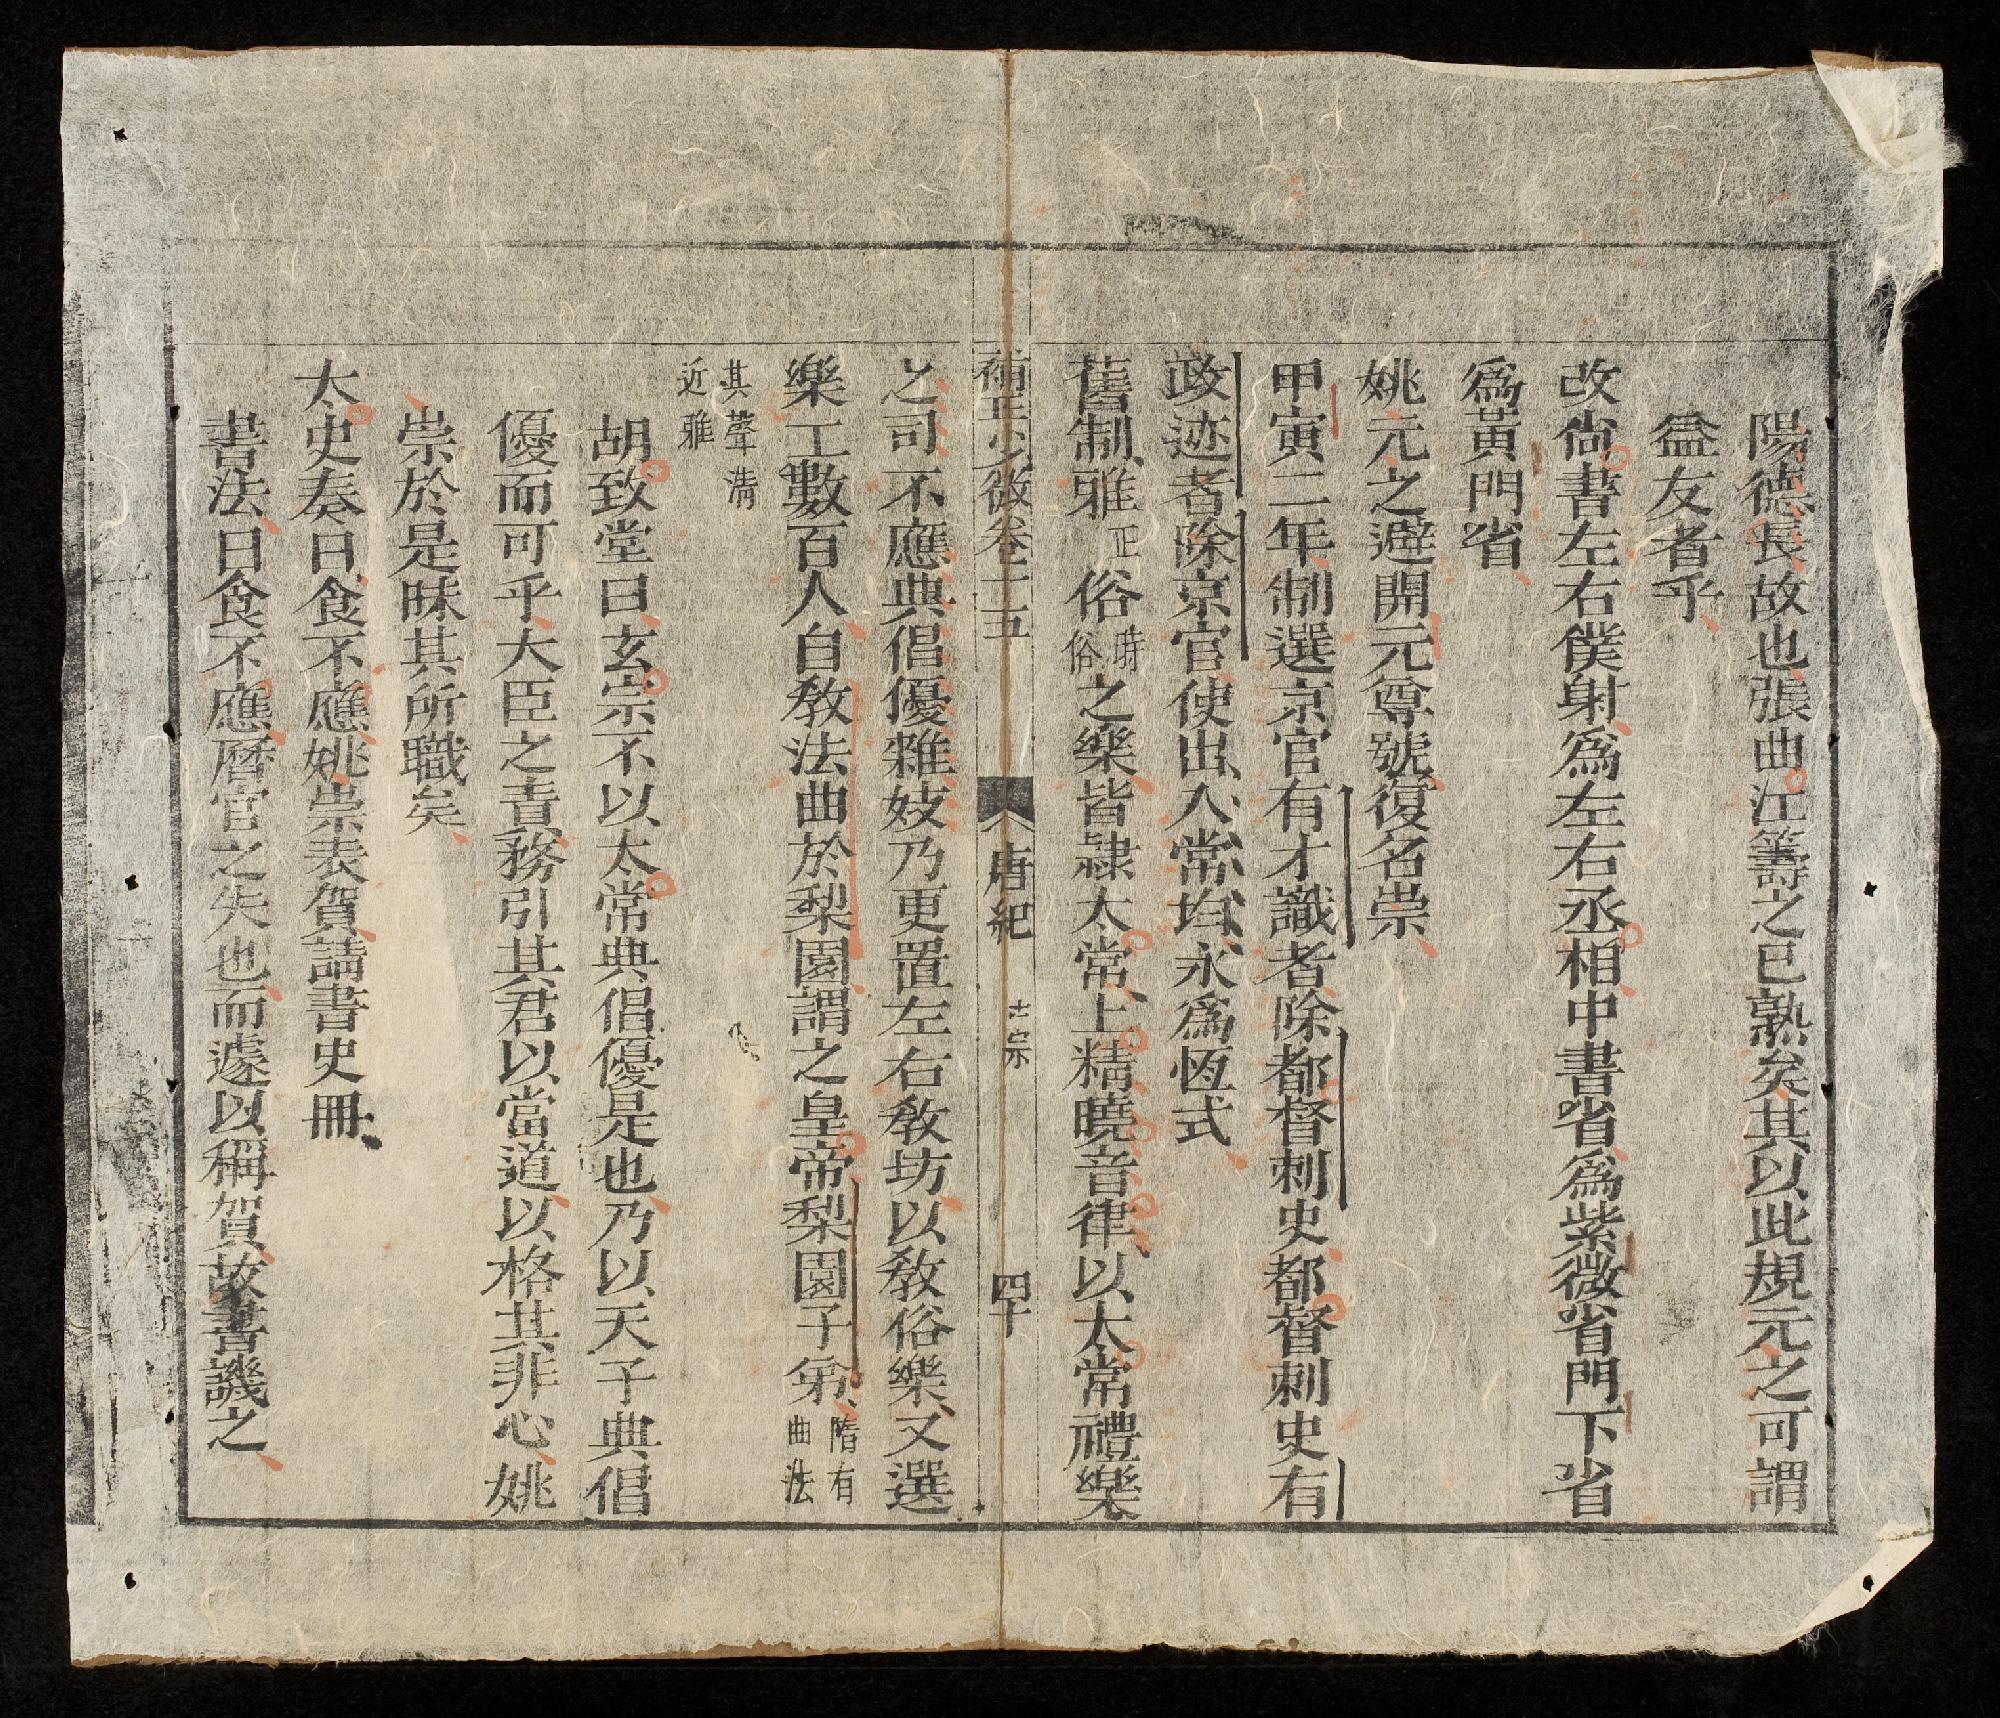 陽德長故也張曲江籌之已熟矣其以此規元之可謂
益友者乎
改尙書左右僕射爲左右丞相中書省爲紫微省門下省
爲黃門省
姚元之避開元尊號復名崇
甲寅二年制選京官有才識者除都督刺史都督刺史有
政迹者除京官使出入常均永爲恆式
舊制雅正俗時俗之樂皆隷太常上精曉音律以太常禮樂
補正少微卷二五 唐紀 玄宗 四十
之司不應典倡優雜妓乃更置左右敎坊以敎俗樂又選
樂工數百人自敎法曲於梨園謂之皇帝梨園子弟隋有法曲
其聲淸近雅
胡致堂曰玄宗不以太常典倡優是也乃以天子典倡
優而可乎大臣之責務引其君以當道以格其非心姚
崇於是昧其所職矣
太史奏日食不應姚崇表賀請書史冊
書法日食不應曆官之失也而遽以稱賀故書譏之